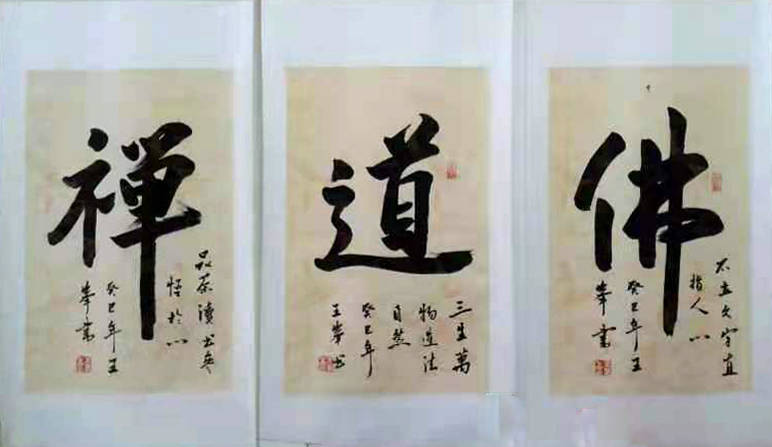 佛
不立文字直
指人心
癸巳年王
峯書
道
三生萬
物道法
自然
癸巳年
王峯书
禅
品茶讀书参
悟於心
癸巳年王
峯書